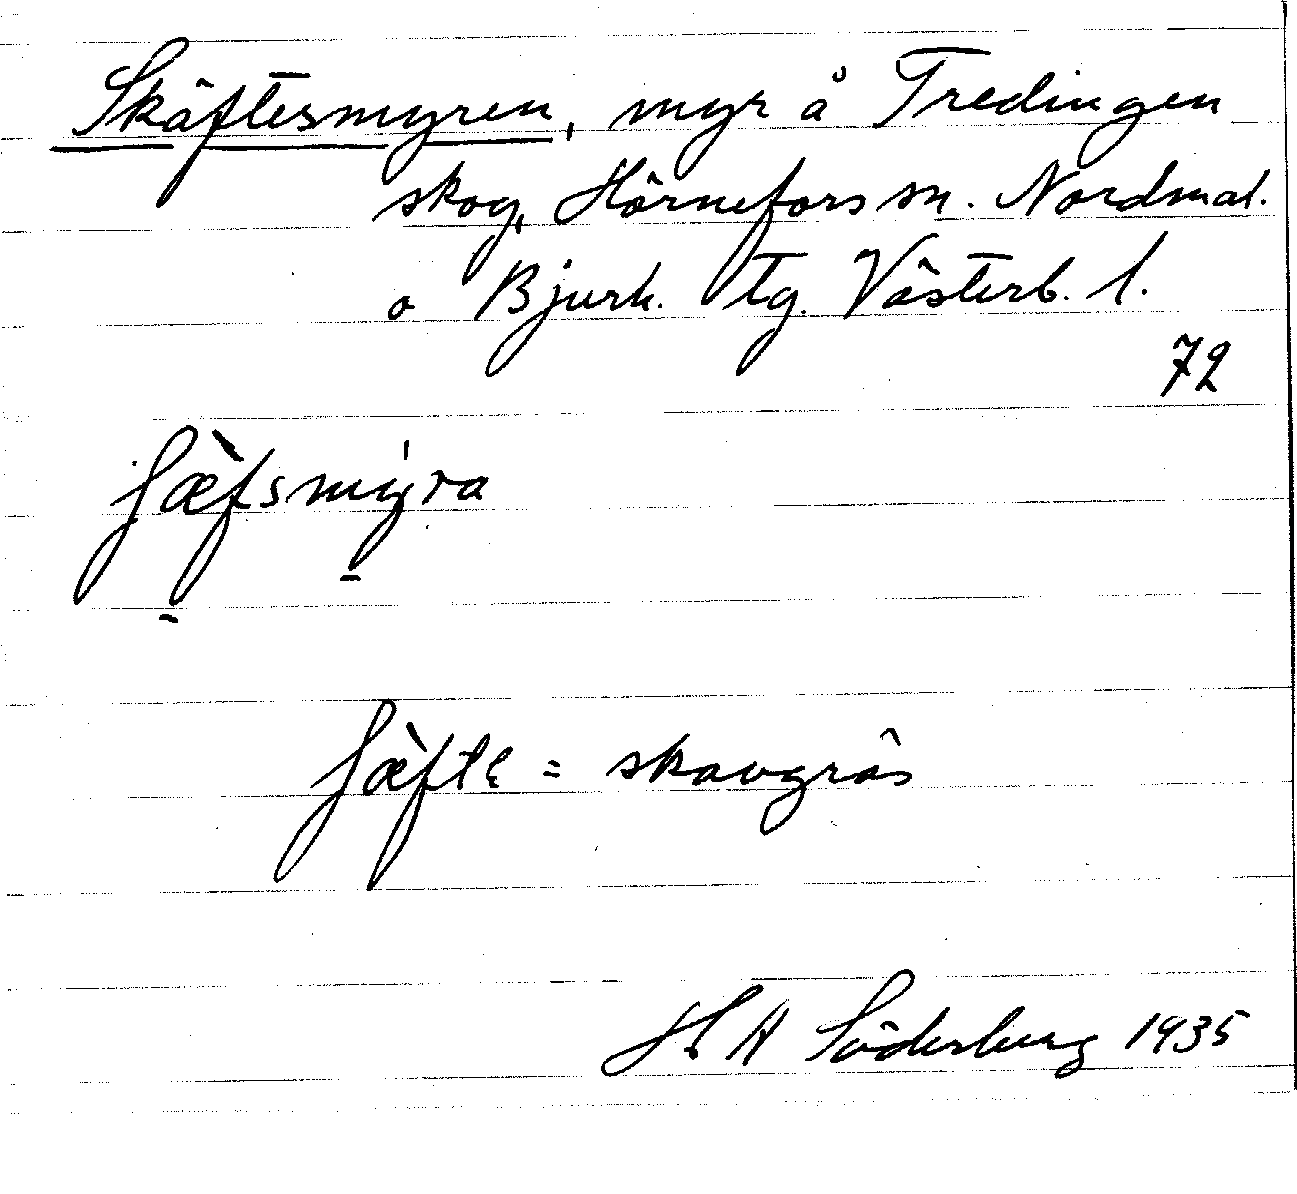 Skäftesmyren, myr å Tredingen
skog, Hörnefors sn. Nordmal.
o Bjurh. tg. Västerb. l.
72
ʃæ̀fsmy̍ra
ʃæ̀ftɛ = skavgräs
H A Söderberg 1935